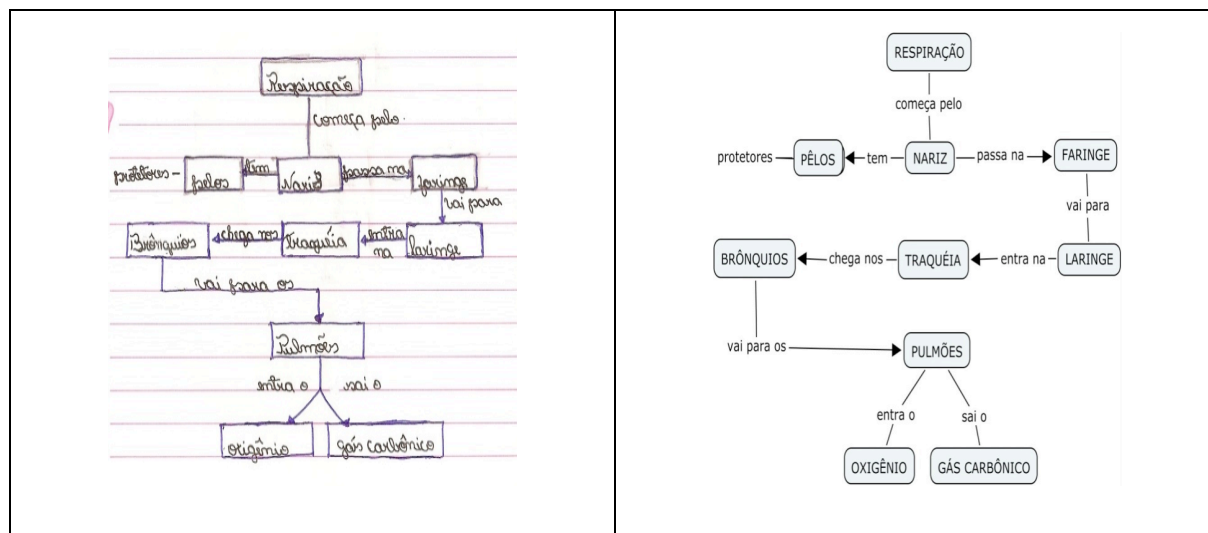 Respiração
começa pelo.
protetores - pelos tem Nariz passa na faringe
vai para
Brônquios chega nos traquéia entra na laringe
vai para os
Pulmões
entra o sai o
oxigênio gás carbônico
RESPIRAÇÃO
começa pelo
protetores PÊLOS tem NARIZ passa na FARINGE
vai para
BRÔNQUIOS chega nos TRAQUÉIA entra na LARINGE
vai para os PULMÕES
entra o sai o
OXIGÊNIO GÁS CARBÔNICO